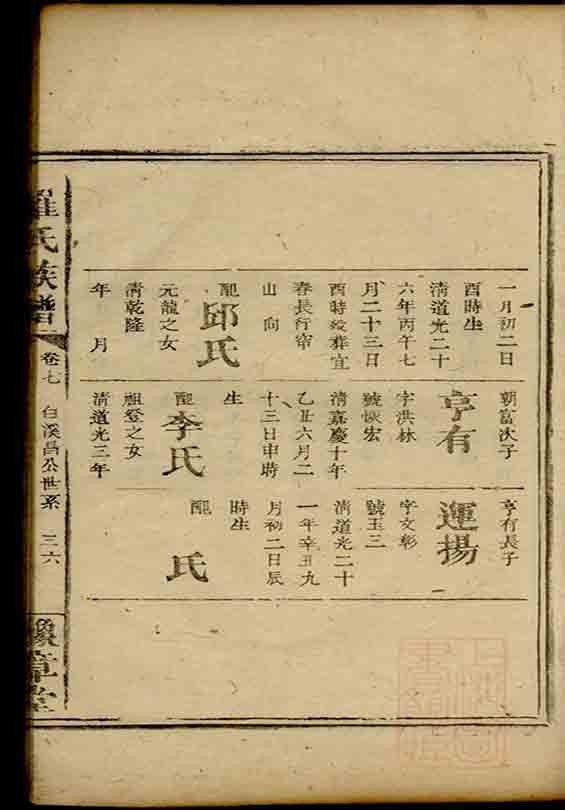 一月初二日
酉時生
清道光二十
六年丙午七
月二十三日
酉時歿葬宜
春長行帘
山向
配邱氏
元龍之女
清乾隆
年月
朝富次子
亨有
字洪林
號恢宏
清嘉慶十年
乙丑六月二
十三日申時
生
配李氏
祖登之女
清道光三年
亨有長子
運揚
字文彰
號玉三
清道光二十
一年辛丑九
月初二日辰
時生
配氏
羅氏族譜
卷七
白溪昌公世系
三六
豫章堂